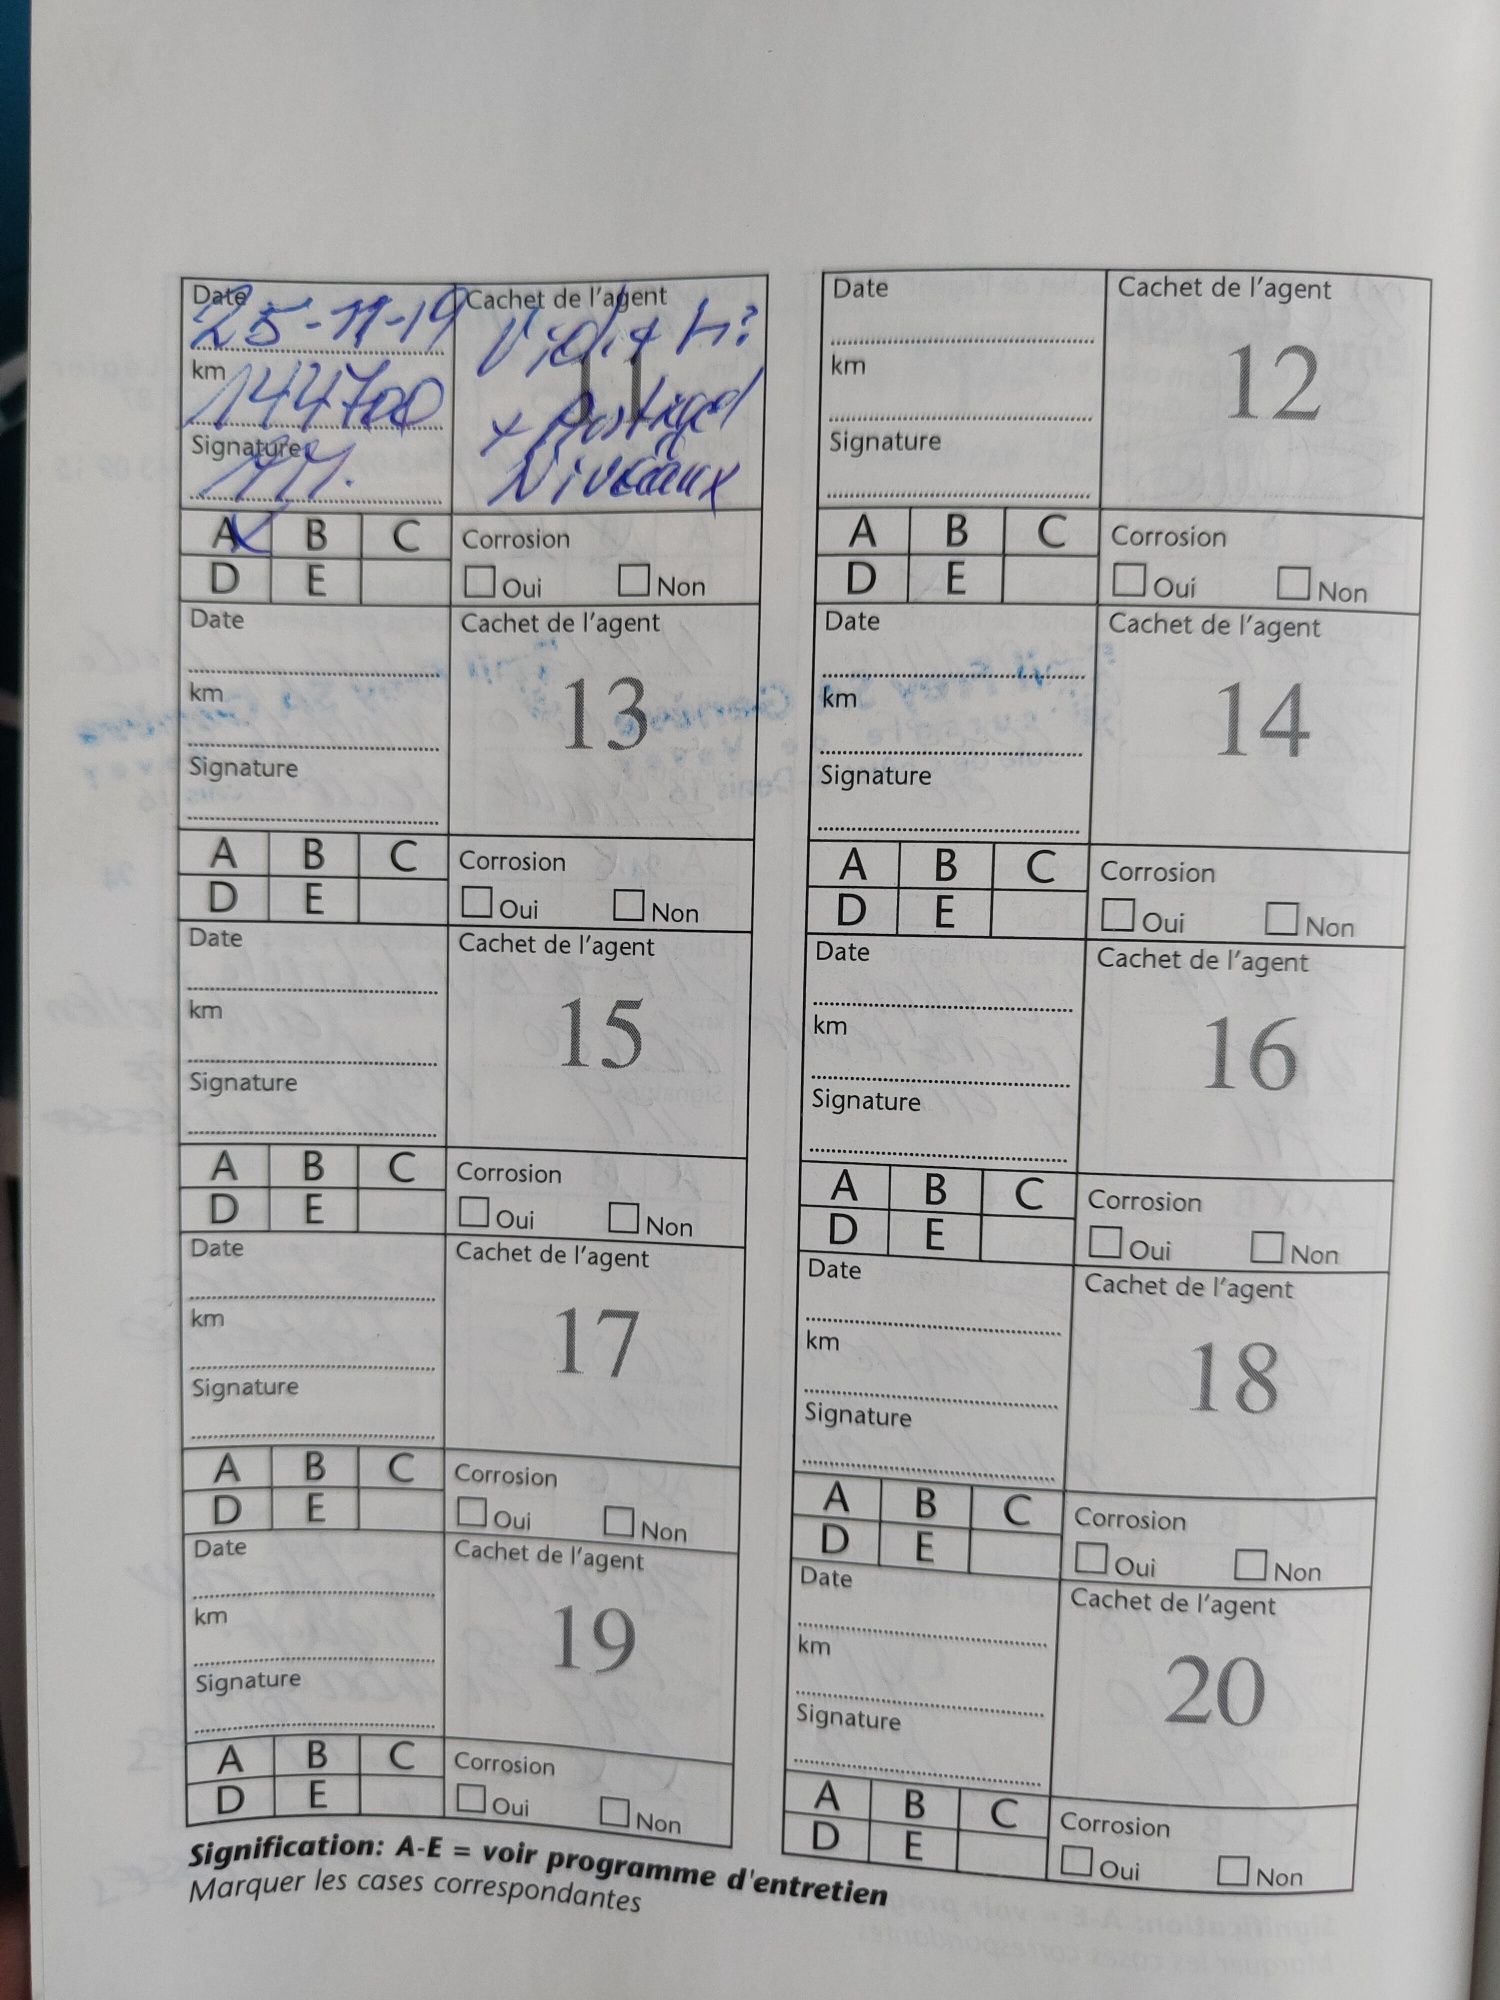 Date
25-11-19
km
144700
Signature
Cachet de l'agent
11
+ Antigel
Niveaux
A B C
D E
Corrosion
Oui Non
Date
km
Signature
Cachet de l'agent
12
A B C
D E
Corrosion
Oui Non
Date
km
Signature
Cachet de l'agent
13
A B C
D E
Corrosion
Oui Non
Date
km
Signature
Cachet de l'agent
14
A B C
D E
Corrosion
Oui Non
Date
km
Signature
Cachet de l'agent
15
A B C
D E
Corrosion
Oui Non
Date
km
Signature
Cachet de l'agent
16
A B C
D E
Corrosion
Oui Non
Date
km
Signature
Cachet de l'agent
17
A B C
D E
Corrosion
Oui Non
Date
km
Signature
Cachet de l'agent
18
A B C
D E
Corrosion
Oui Non
Date
km
Signature
Cachet de l'agent
19
A B C
D E
Corrosion
Oui Non
Date
km
Signature
Cachet de l'agent
20
A B C
D E
Corrosion
Oui Non
Signification: A-E = voir programme d'entretien
Marquer les cases correspondantes